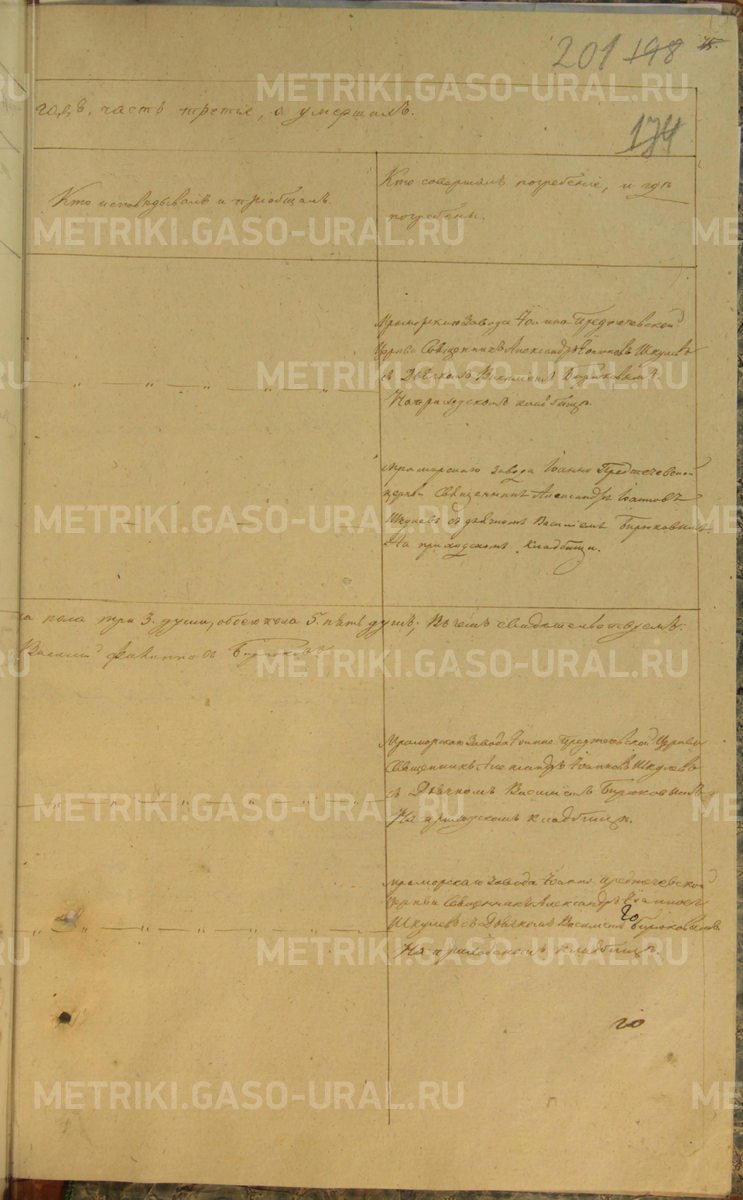 201 198 45.
годъ, часть третія, о умершихъ.
174
Кто исповѣдывалъ и пріобщалъ.
Кто совершалъ погребеніе, и гдѣ
погребены.
Мраморскаго Завода Іоанно Предтечевской
Церкви Священникъ Александръ Іоанновъ Шкулевъ
съ Дьячкомъ Василіемъ Бирюковымъ
На приходскомъ кладбищѣ.
Мраморскаго завода Іоанно Предтечевской
церкви Священникъ Александръ Іоанновъ
Шкулевъ съ дьячкомъ Василіемъ Бирюковымъ.
На приходскомъ кладбищѣ.
пола три 3. души, обоего пола 5. пять душъ; Въ чемъ свидѣтельствуемъ.
Василій Филипповъ Бирюковъ
Мраморскаго Завода Іоанно Предтечевской Церкви
Священникъ Александръ Іоанновъ Шкулевъ
съ Дьячкомъ Василіемъ Бирюковымъ
На приходскомъ кладбищѣ.
Мраморскаго Завода Іоанно Предтечевской
Церкви Священникъ Александръ Іоанновъ
Шкулевъ съ Дьячкомъ Василіемъ Бирюковымъ
го
На приходскомъ кладбищѣ.
го
METRIKI.GASO-URAL.RU